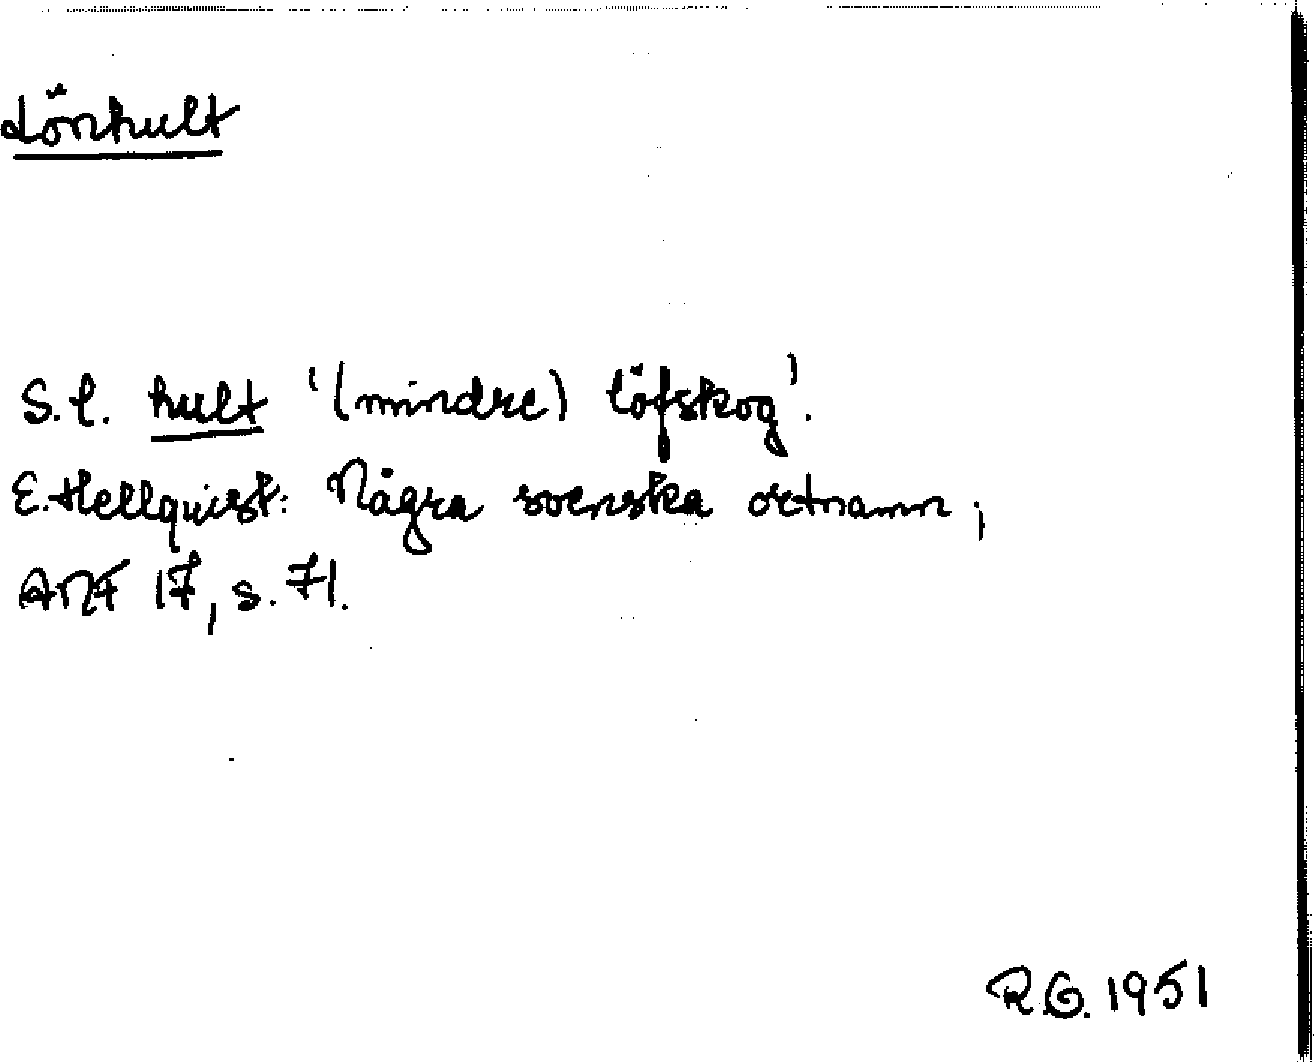 Lönhult
S.l. hult '(mindre) löfskog'.
E. Hellquist: Några svenska ortnamn,
ANF 17, s. 71.
R.G. 1951